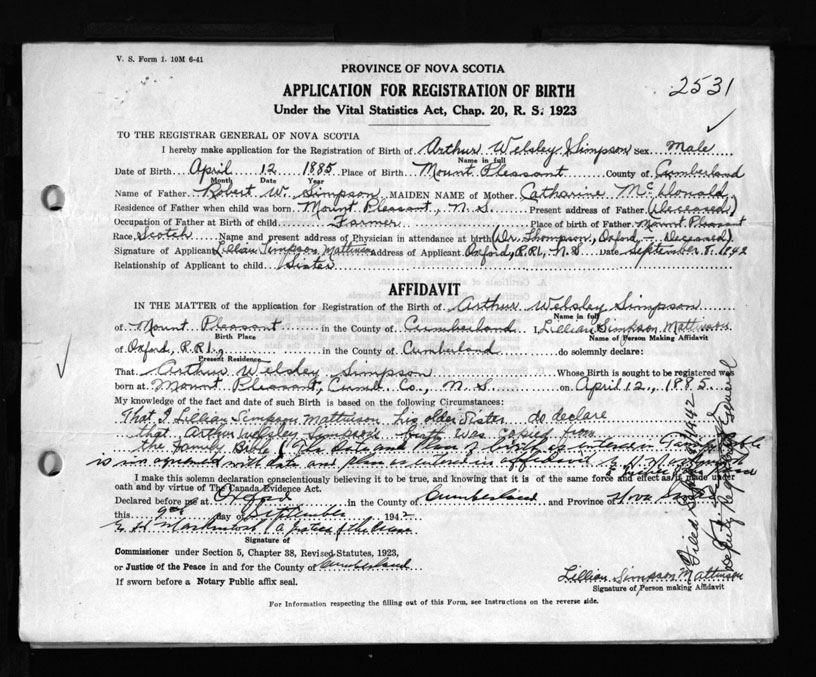 V. S. Form 1. 10M 6-41
PROVINCE OF NOVA SCOTIA
APPLICATION FOR REGISTRATION OF BIRTH
2531
Under the Vital Statistics Act, Chap. 20, R. S. 1923
TO THE REGISTRAR GENERAL OF NOVA SCOTIA
I hereby make application for the Registration of Birth of Arthur Welsley Simpson Sex Male
Name in full
Date of Birth April 12 1885 Place of Birth Mount Pleasant County of Cumberland
Month Date Year
Name of Father Robert W. Simpson MAIDEN NAME of Mother Catharine McDonald
Residence of Father when child was born Mount Pleasant, N.S. Present address of Father (Deceased)
Occupation of Father at Birth of child Farmer Place of birth of Father Mount Pleasant
Race Scotch Name and present address of Physician in attendance at birth (Dr. Thompson, Oxford - Deceased)
Signature of Applicant Lillian Simpson Mattinson Address of Applicant Oxford, R.R.1, N.S. Date September 8. 1942
Relationship of Applicant to child Sister
AFFIDAVIT
IN THE MATTER of the application for Registration of the Birth of Arthur Welsley Simpson
Name in full
of Mount Pleasant in the County of Cumberland I, Lillian Simpson Mattinson
Birth Place Name of Person Making Affidavit
of Oxford, R.R.1., in the County of Cumberland do solemnly declare:
Present Residence
That Arthur Welsley Simpson Whose Birth is sought to be registered was
born at Mount Pleasant, Cumb. Co., N.S. on April 12., 1885
My knowledge of the fact and date of such Birth is based on the following Circumstances:
That I Lillian Simpson Mattinson his older Sister do declare
that Arthur Welsley Simpson's birth was copied from
the Family Bible (The date and place of birth as entered in Family Bible
is in agreement with date and place as entered in affidavit
I make this solemn declaration conscientiously believing it to be true, and knowing that it is of the same force and effect as if made under
oath and by virtue of The Canada Evidence Act.
Declared before me at Oxford in the County of Cumberland and Province of Nova Scotia
this 9th day of September 1942
Signature of
Commissioner under Section 5, Chapter 38, Revised Statutes, 1923,
or Justice of the Peace in and for the County of Cumberland
If sworn before a Notary Public affix seal.
Lillian Simpson Mattinson
Signature of Person making Affidavit
For Information respecting the filling out of this Form, see Instructions on the reverse side.
Deputy Registrar General